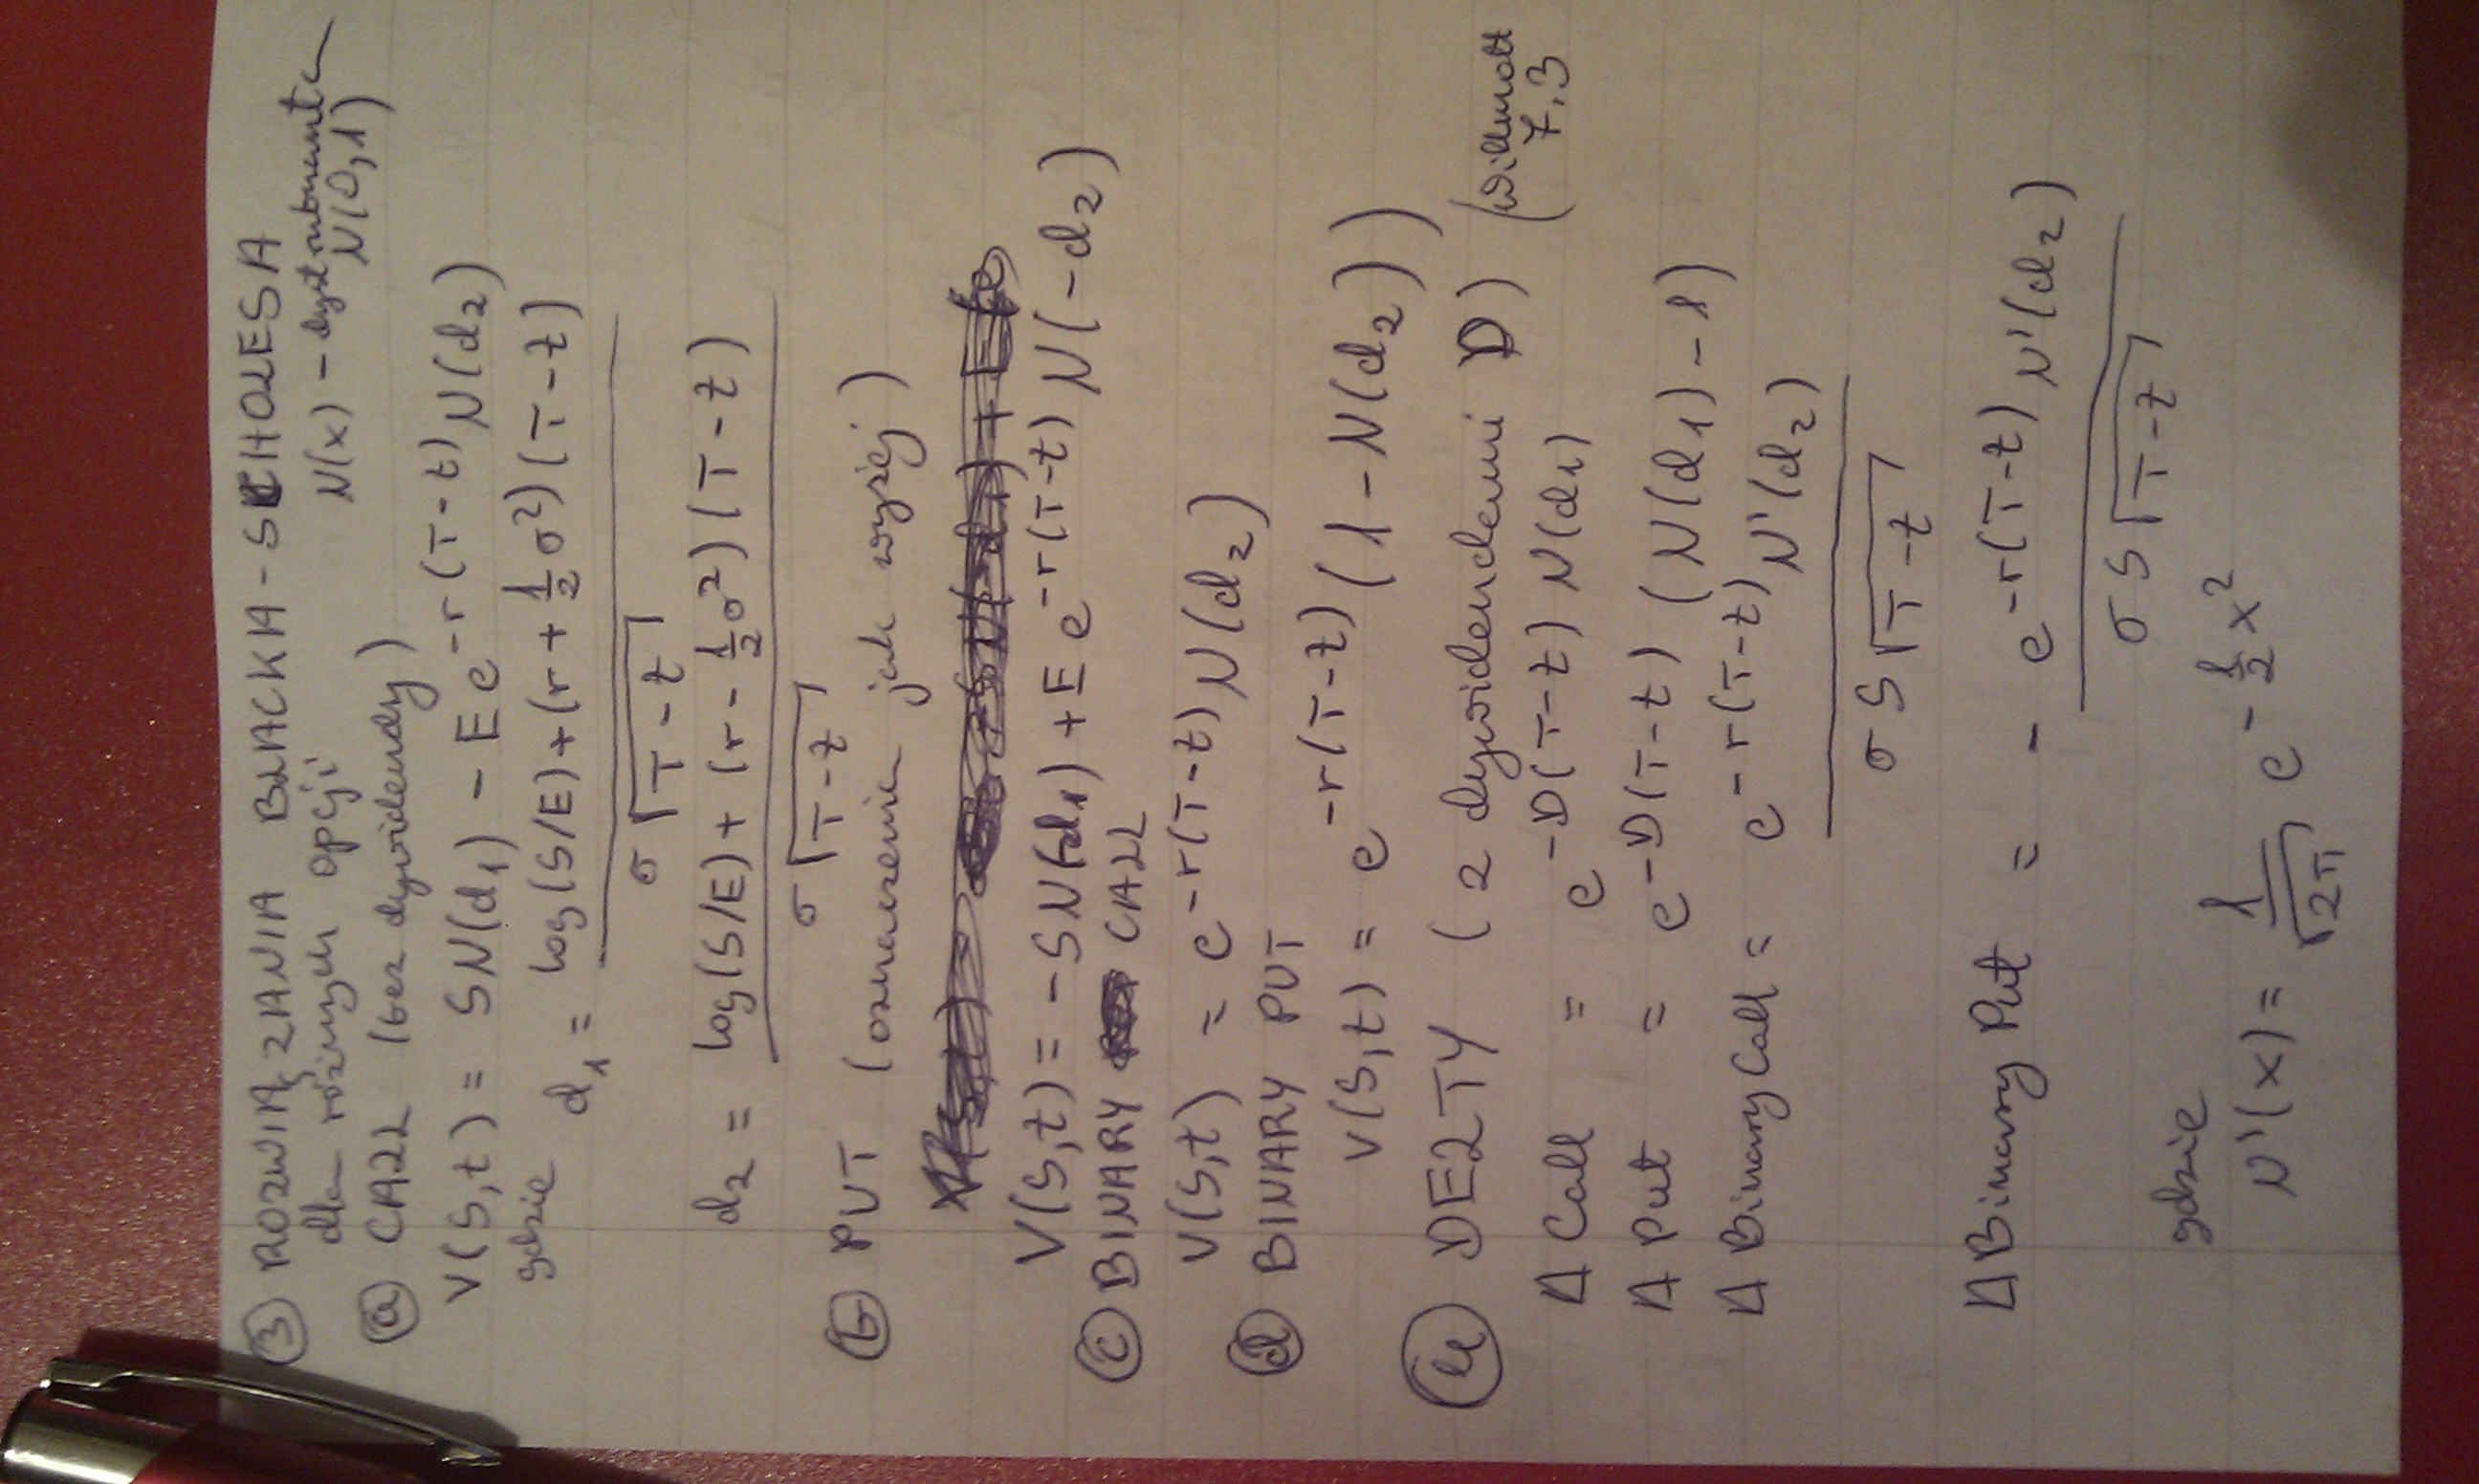 ③ ROZWIĄZANIA BLACKA-SCHOLESA
dla różnych opcji N(x) - dystrybuanta N(0,1)
ⓐ CALL (bez dywidendy)
V(S,t) = SN(d₁) - Ee^{-r(T-t)} N(d₂)
gdzie
d₁ = (log(S/E)+(r+½σ²)(T-t)) / (σ√(T-t))
d₂ = (log(S/E)+(r-½σ²)(T-t)) / (σ√(T-t))
ⓑ PUT (oznaczenia jak wyżej)
V(S,t) = -SN(-d₁)+Ee^{-r(T-t)} N(-d₂)
ⓒ BINARY CALL
V(S,t) = e^{-r(T-t)} N(d₂)
ⓓ BINARY PUT
V(S,t) = e^{-r(T-t)} (1-N(d₂))
④ DELTY (z dywidendami D) (Willmott 7.3
Δ Call = e^{-D(T-t)} N(d₁)
Δ Put = e^{-D(T-t)} (N(d₁)-1)
Δ Binary Call = e^{-r(T-t)} N'(d₂) / (σS√(T-t))
Δ Binary Put = - e^{-r(T-t)} N'(d₂) / (σS√(T-t))
gdzie
N'(x) = 1/√(2π) e^{-½x²}